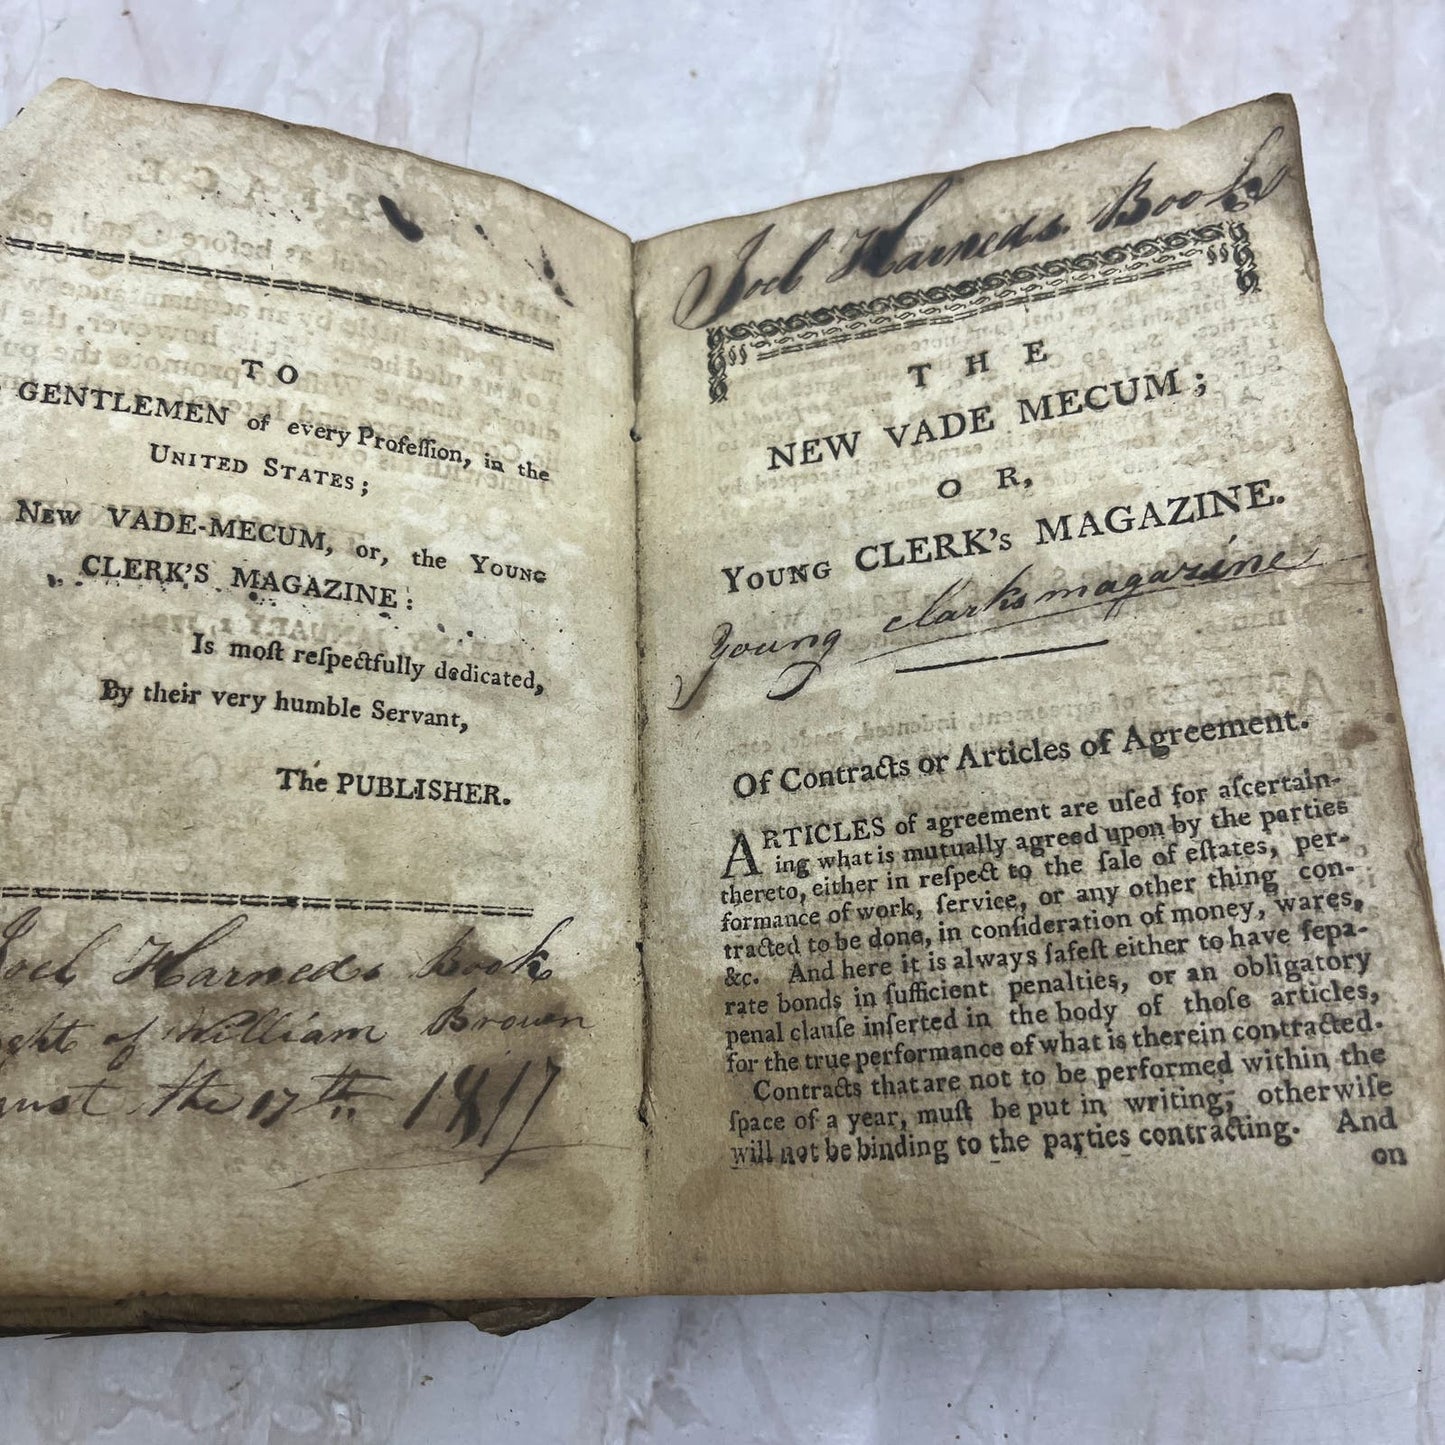 TO
GENTLEMEN of every Profeſſion, in the
UNITED STATES;
NEW VADE-MECUM, or, the YOUNG
CLERK'S MAGAZINE:
Is moſt reſpectfully dedicated,
By their very humble Servant,
The PUBLISHER.
Joel Harneds Book
of William Brown
the 17th 1817
Joel Harneds Book
THE
NEW VADE MECUM;
OR,
YOUNG CLERK's MAGAZINE.
Young clarks magazine
Of Contracts or Articles of Agreement.
ARTICLES of agreement are uſed for aſcertain-
ing what is mutually agreed upon by the parties
thereto, either in reſpect to the ſale of eſtates, per-
formance of work, ſervice, or any other thing con-
tracted to be done, in conſideration of money, wares,
&c. And here it is always ſafeſt either to have ſepa-
rate bonds in ſufficient penalties, or an obligatory
penal clauſe inſerted in the body of thoſe articles,
for the true performance of what is therein contracted.
Contracts that are not to be performed within the
ſpace of a year, muſt be put in writing; otherwiſe
will not be binding to the parties contracting. And
on